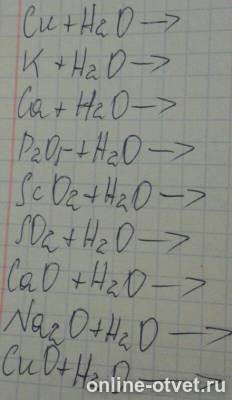 Cu + H2O →
K + H2O →
Ca + H2O →
P2O5 + H2O →
ScO2 + H2O →
SO2 + H2O →
CaO + H2O →
Na2O + H2O →
CuO + H2O →
online-otvet.ru